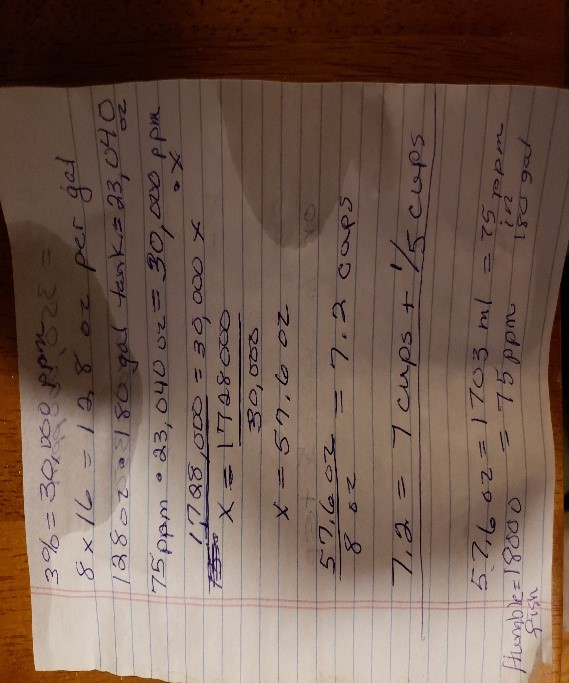 3% = 30,000 ppm
8 x 16 = 128 oz per gal
128 oz • 180 gal tank = 23,040 oz
75 ppm • 23,040 oz = 30,000 ppm • X
1728,000 = 30,000 X
X = 1728000
30,000
X = 57.6 oz
57.6 oz = 7.2 cups
8 oz
7.2 = 7 cups + 1/5 cups
57.6 oz = 1703 ml = 75 ppm in 180 gal
Humble fish = 18000 = 75 ppm